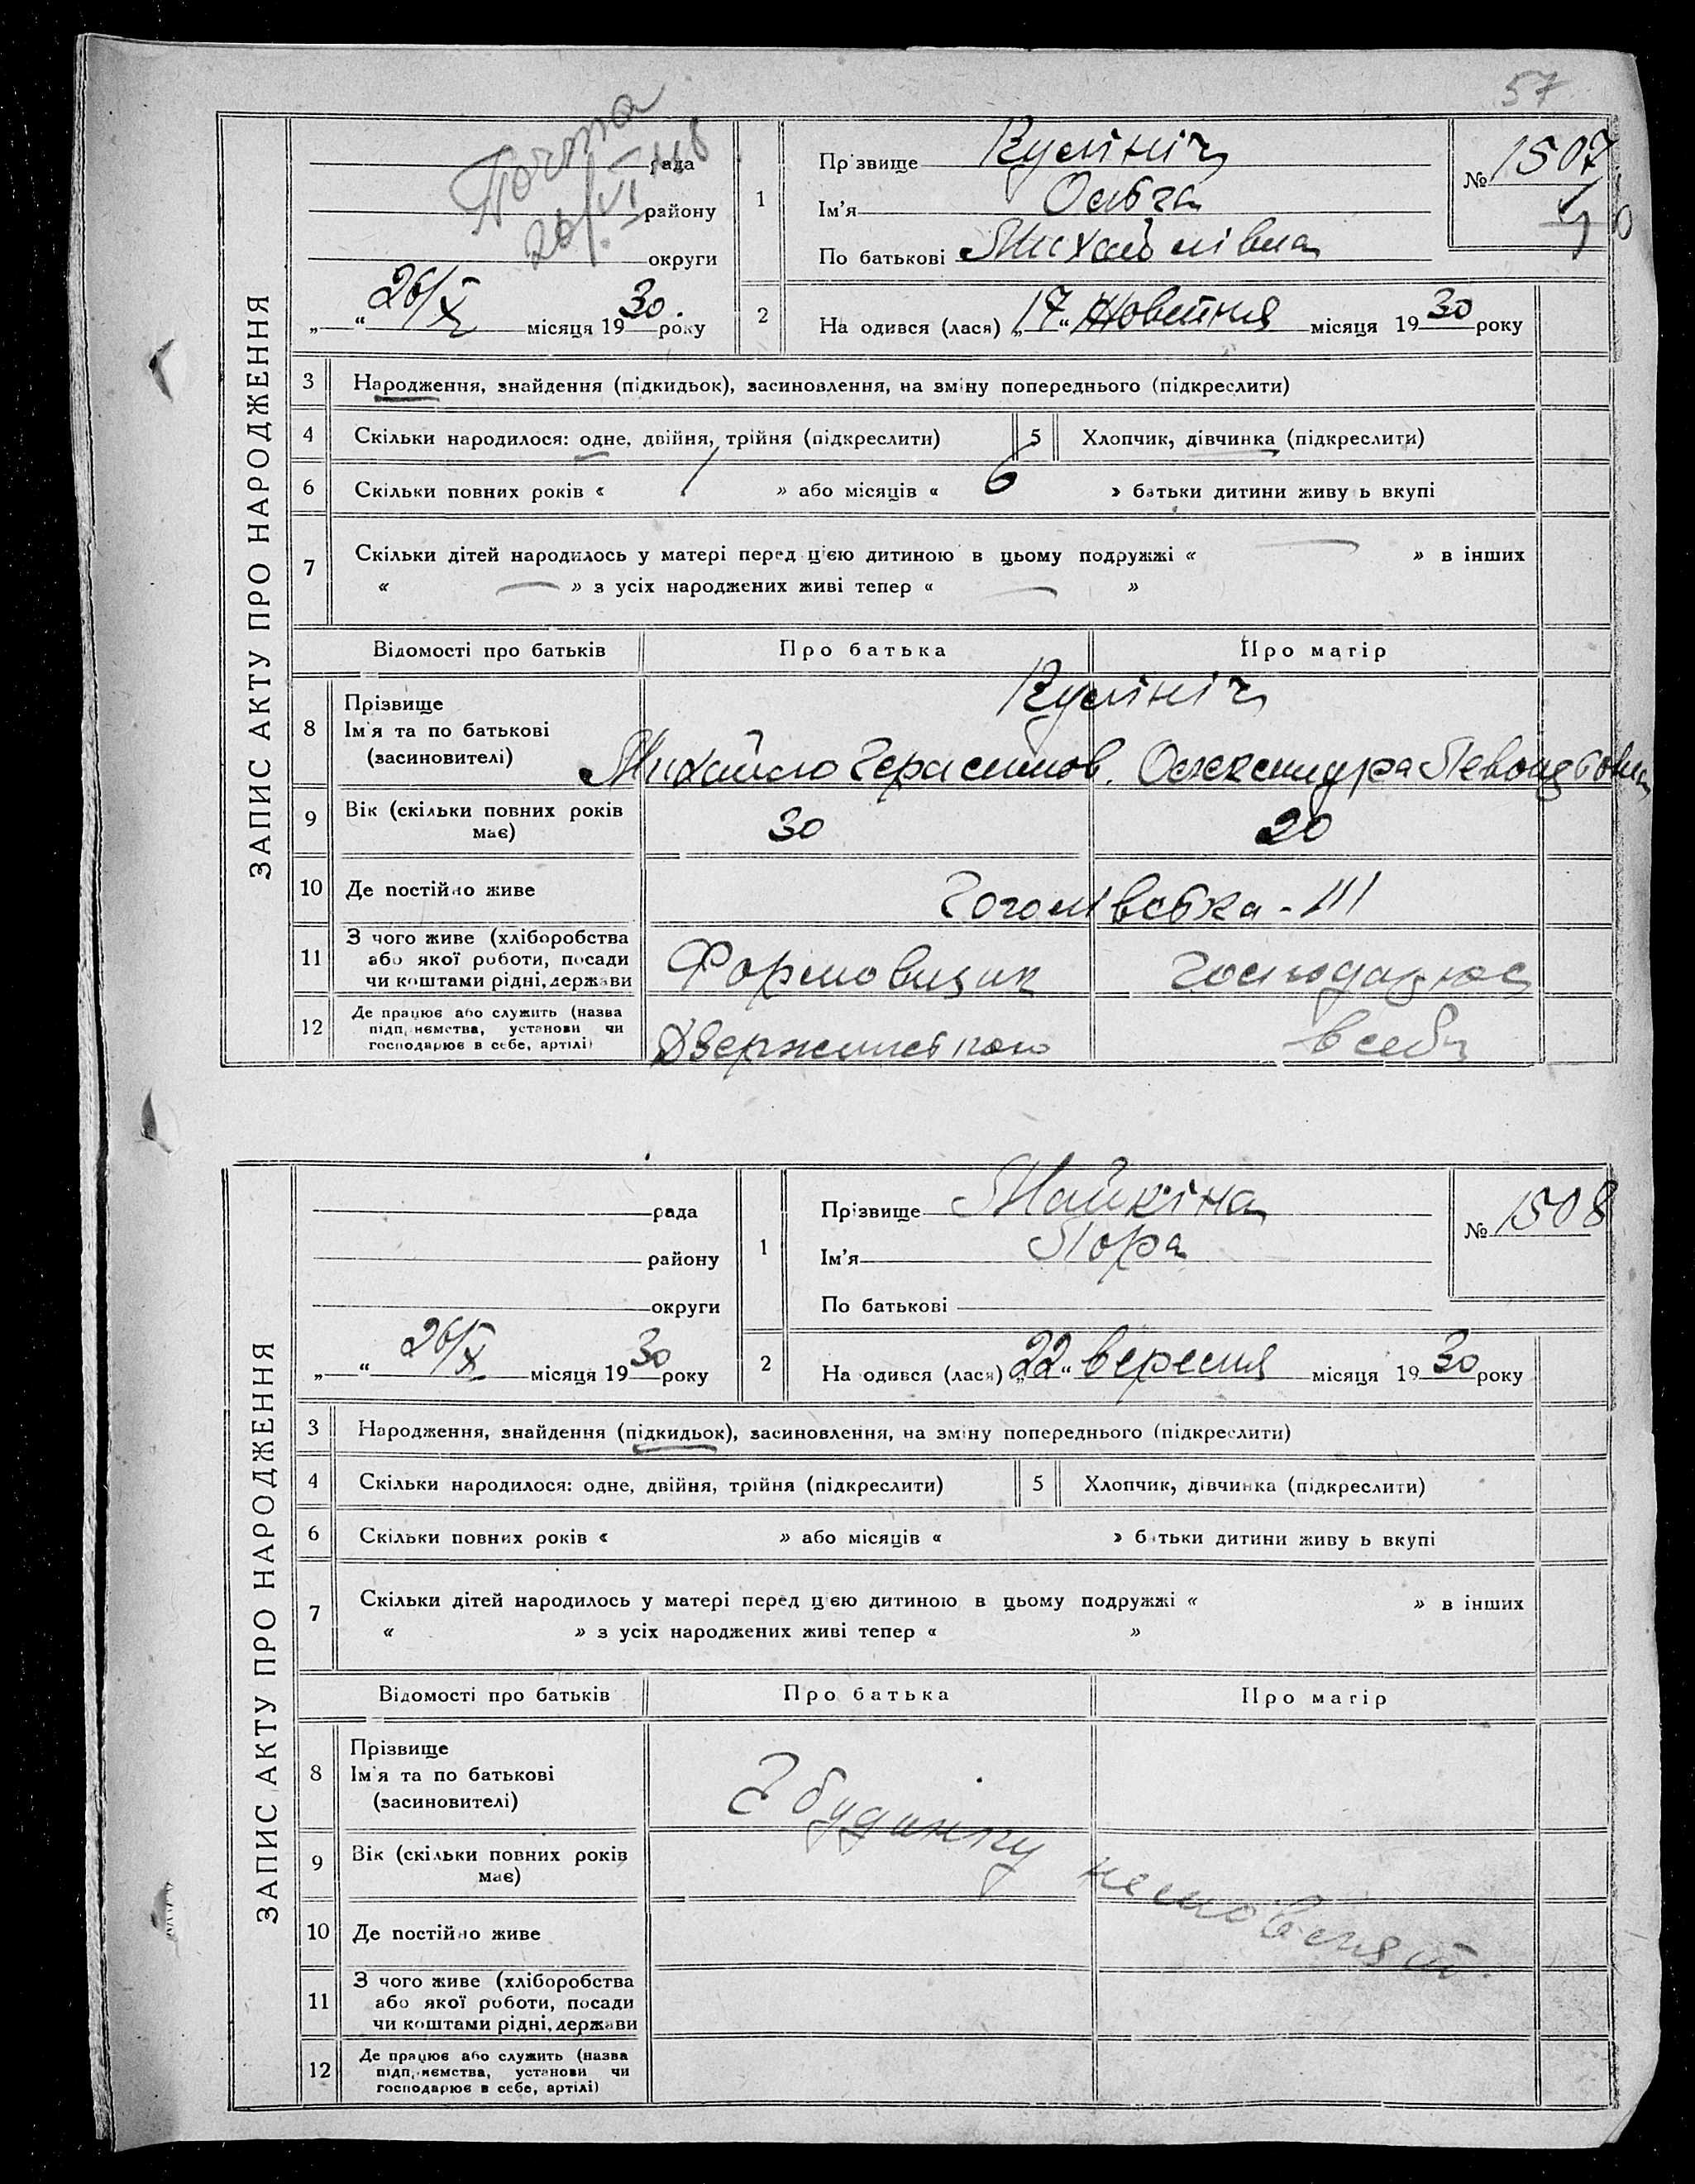 57
ЗАПИС АКТУ ПРО НАРОДЖЕННЯ
рада
району
округи
„ “ 26/X місяця 1930 року
1 Прізвище Кулініч
Ім'я Ольга
По батькові Михайлівна
№ 1507
2 На одився (лася) „17“ Жовтня місяця 1930 року
3 Народження, знайдення (підкидьок), засиновлення, на зміну попереднього (підкреслити)
4 Скільки народилося: одне, двійня, трійня (підкреслити) 5 Хлопчик, дівчинка (підкреслити)
6 Скільки повних років « / » або місяців « 6 » батьки дитини живу ь вкупі
7 Скільки дітей народилось у матері перед цією дитиною в цьому подружжі « — » в інших
« — » з усіх народжених живі тепер « — »
Відомості про батьків Про батька Про матір
8 Прізвище
Ім'я та по батькові
(засиновителі)
Кулініч
Михайло Герасимов. Олександра Левонтьовна
9 Вік (скільки повних років має) 30 20
10 Де постійно живе Гоголівська - III
11 З чого живе (хліборобства
або якої роботи, посади
чи коштами рідні, держави
Формовщик
12 Де працює або служить (назва
підприємства, установи чи
господарює в себе, артілі)
в себе
ЗАПИС АКТУ ПРО НАРОДЖЕННЯ
рада
району
округи
„ “ 26/X місяця 1930 року
1 Прізвище Майкіна
Ім'я Лора
По батькові
№ 1508
2 На одився (лася) „22“ вересня місяця 1930 року
3 Народження, знайдення (підкидьок), засиновлення, на зміну попереднього (підкреслити)
4 Скільки народилося: одне, двійня, трійня (підкреслити) 5 Хлопчик, дівчинка (підкреслити)
6 Скільки повних років « » або місяців « » батьки дитини живу ь вкупі
7 Скільки дітей народилось у матері перед цією дитиною в цьому подружжі « » в інших
« » з усіх народжених живі тепер « »
Відомості про батьків Про батька Про матір
8 Прізвище
Ім'я та по батькові
(засиновителі)
З будинку немовлят.
9 Вік (скільки повних років має)
10 Де постійно живе
11 З чого живе (хліборобства
або якої роботи, посади
чи коштами рідні, держави
12 Де працює або служить (назва
підприємства, установи чи
господарює в себе, артілі)